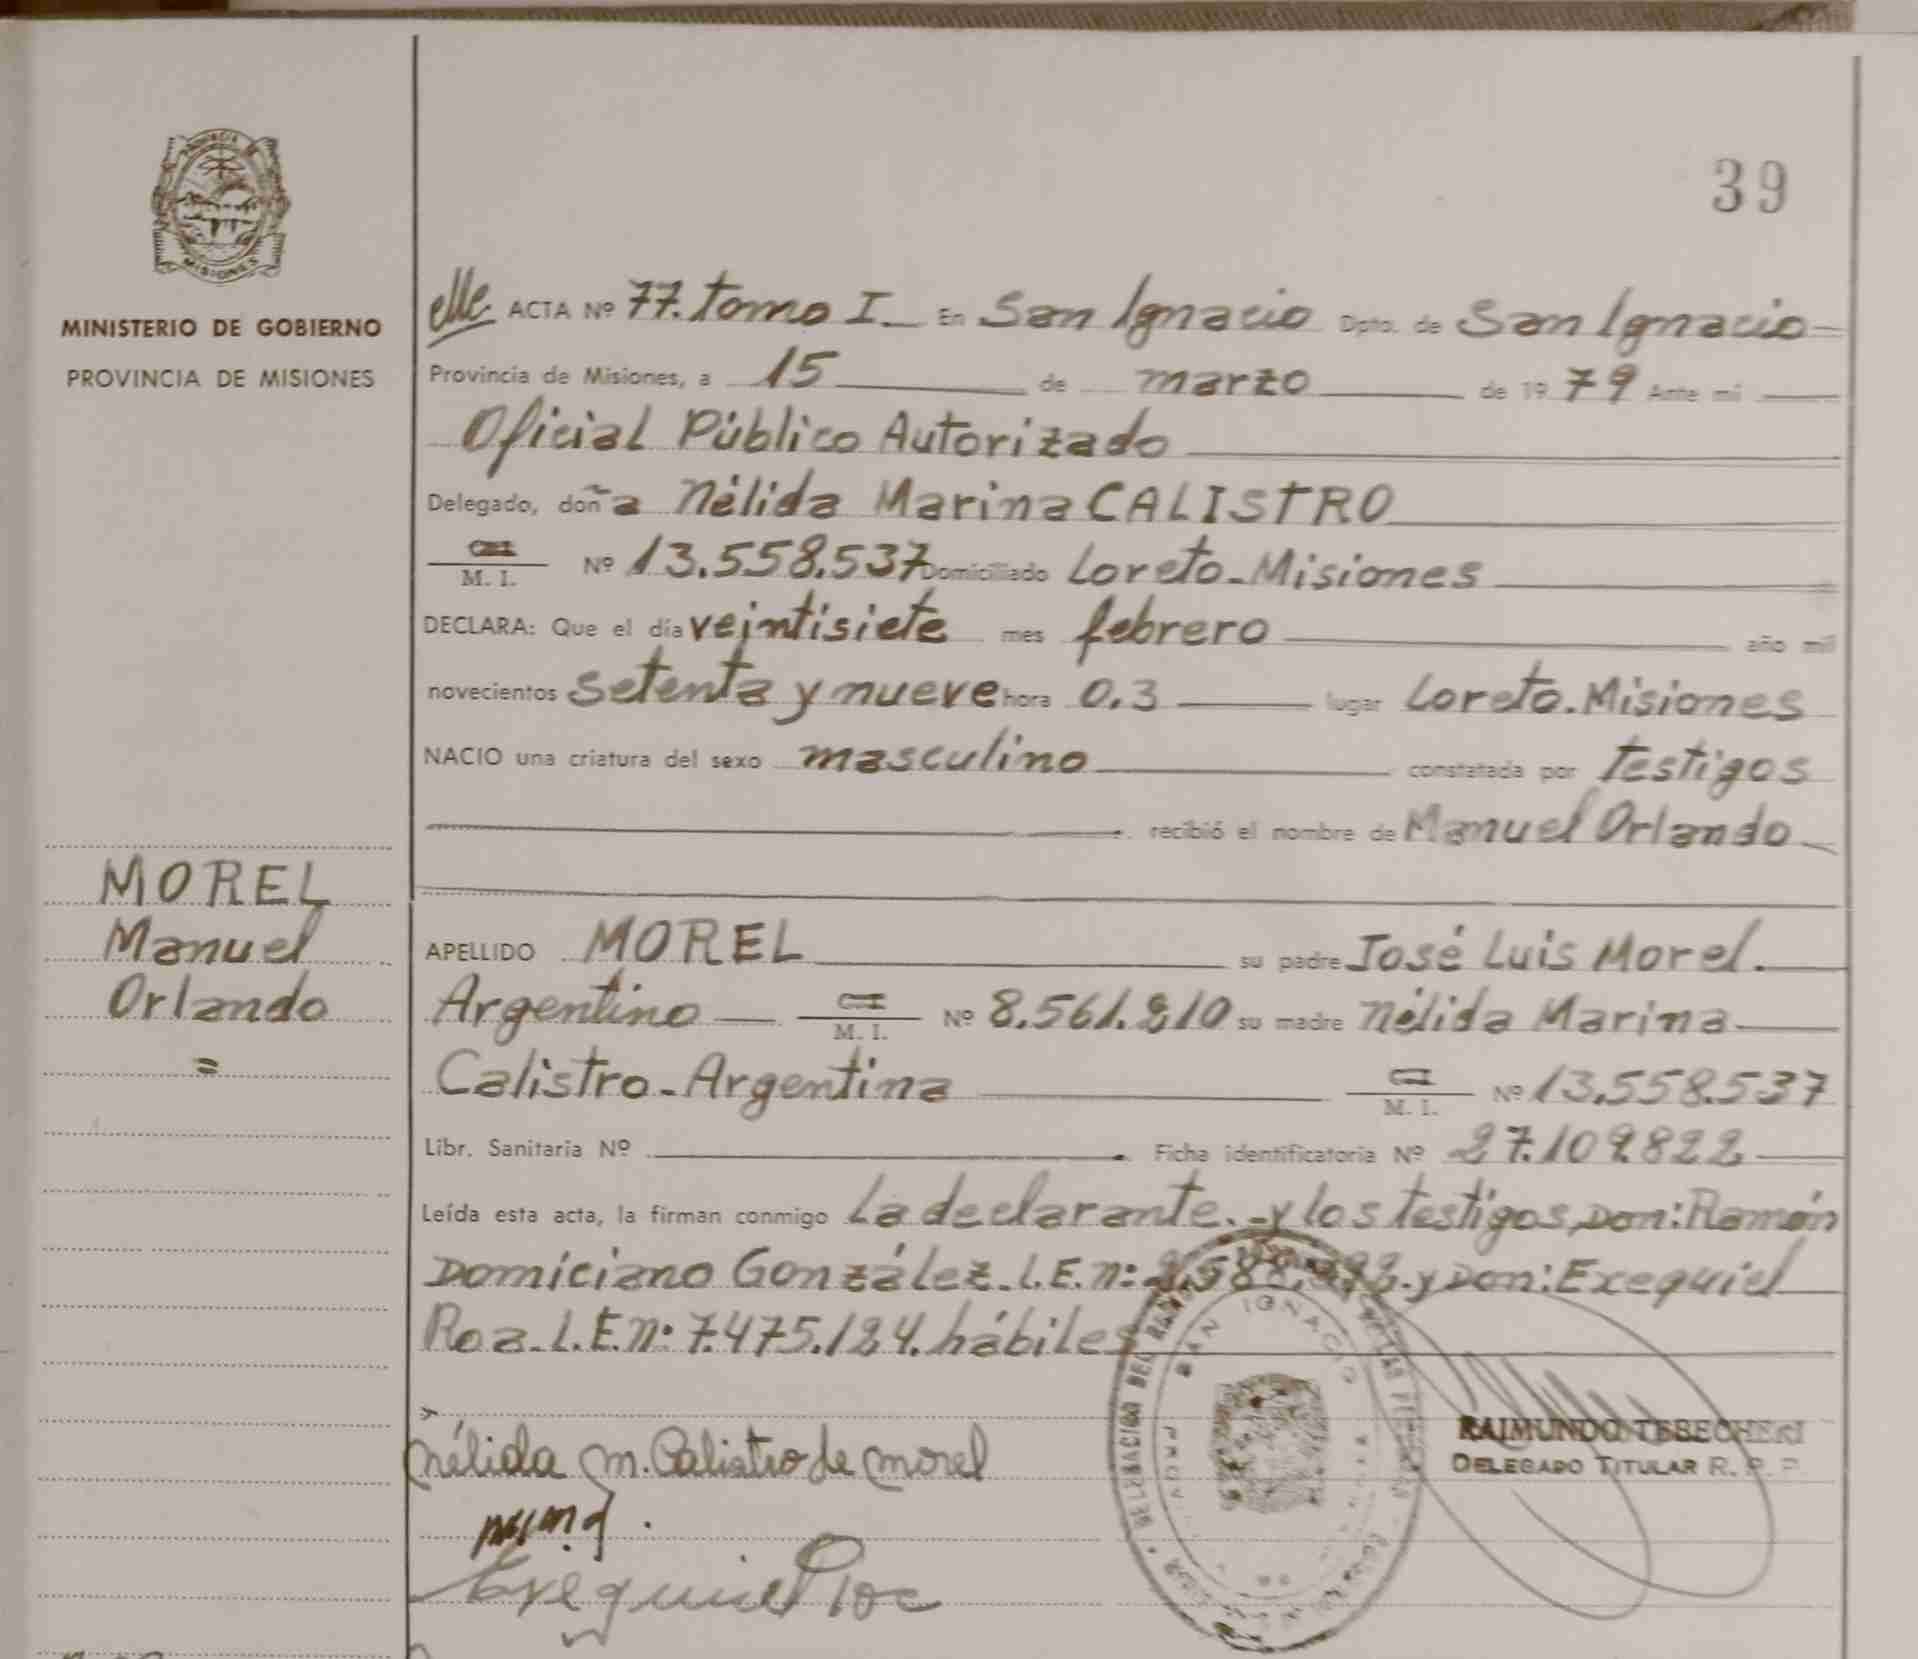 39
MISIONES
MINISTERIO DE GOBIERNO
PROVINCIA DE MISIONES
ACTA Nº 77. Tomo I_ En San Ignacio Dpto. de San Ignacio
Provincia de Misiones, a 15 de marzo de 1979 Ante mi
Oficial Público Autorizado
Delegado, doña Nélida Marina CALISTRO
M. I. Nº 13.558.537 Domiciliado Loreto-Misiones
DECLARA: Que el día veintisiete mes febrero año mil
novecientos setenta y nueve hora 0.3 lugar Loreto.Misiones
NACIO una criatura del sexo masculino constatada por Testigos
recibió el nombre de Manuel Orlando
MOREL
Manuel
Orlando
=
APELLIDO MOREL su padre José Luis Morel.
Argentino M. I. Nº 8.561.210 su madre Nélida Marina
Calistro-Argentina M. I. Nº 13.558.537
Libr. Sanitaria Nº Ficha identificatoria Nº 27.109.822
Leída esta acta, la firman conmigo La declarante.-y los testigos, Don: Ramón
Domiciano González-L.E.n: y Don: Exequiel
Roa-L.E.n: 7.475.124. hábiles
Nélida M. Calistro de Morel
Exequiel Roa
SAN IGNACIO
RAIMUNDO TEBECHERI
DELEGADO TITULAR R. P. P.